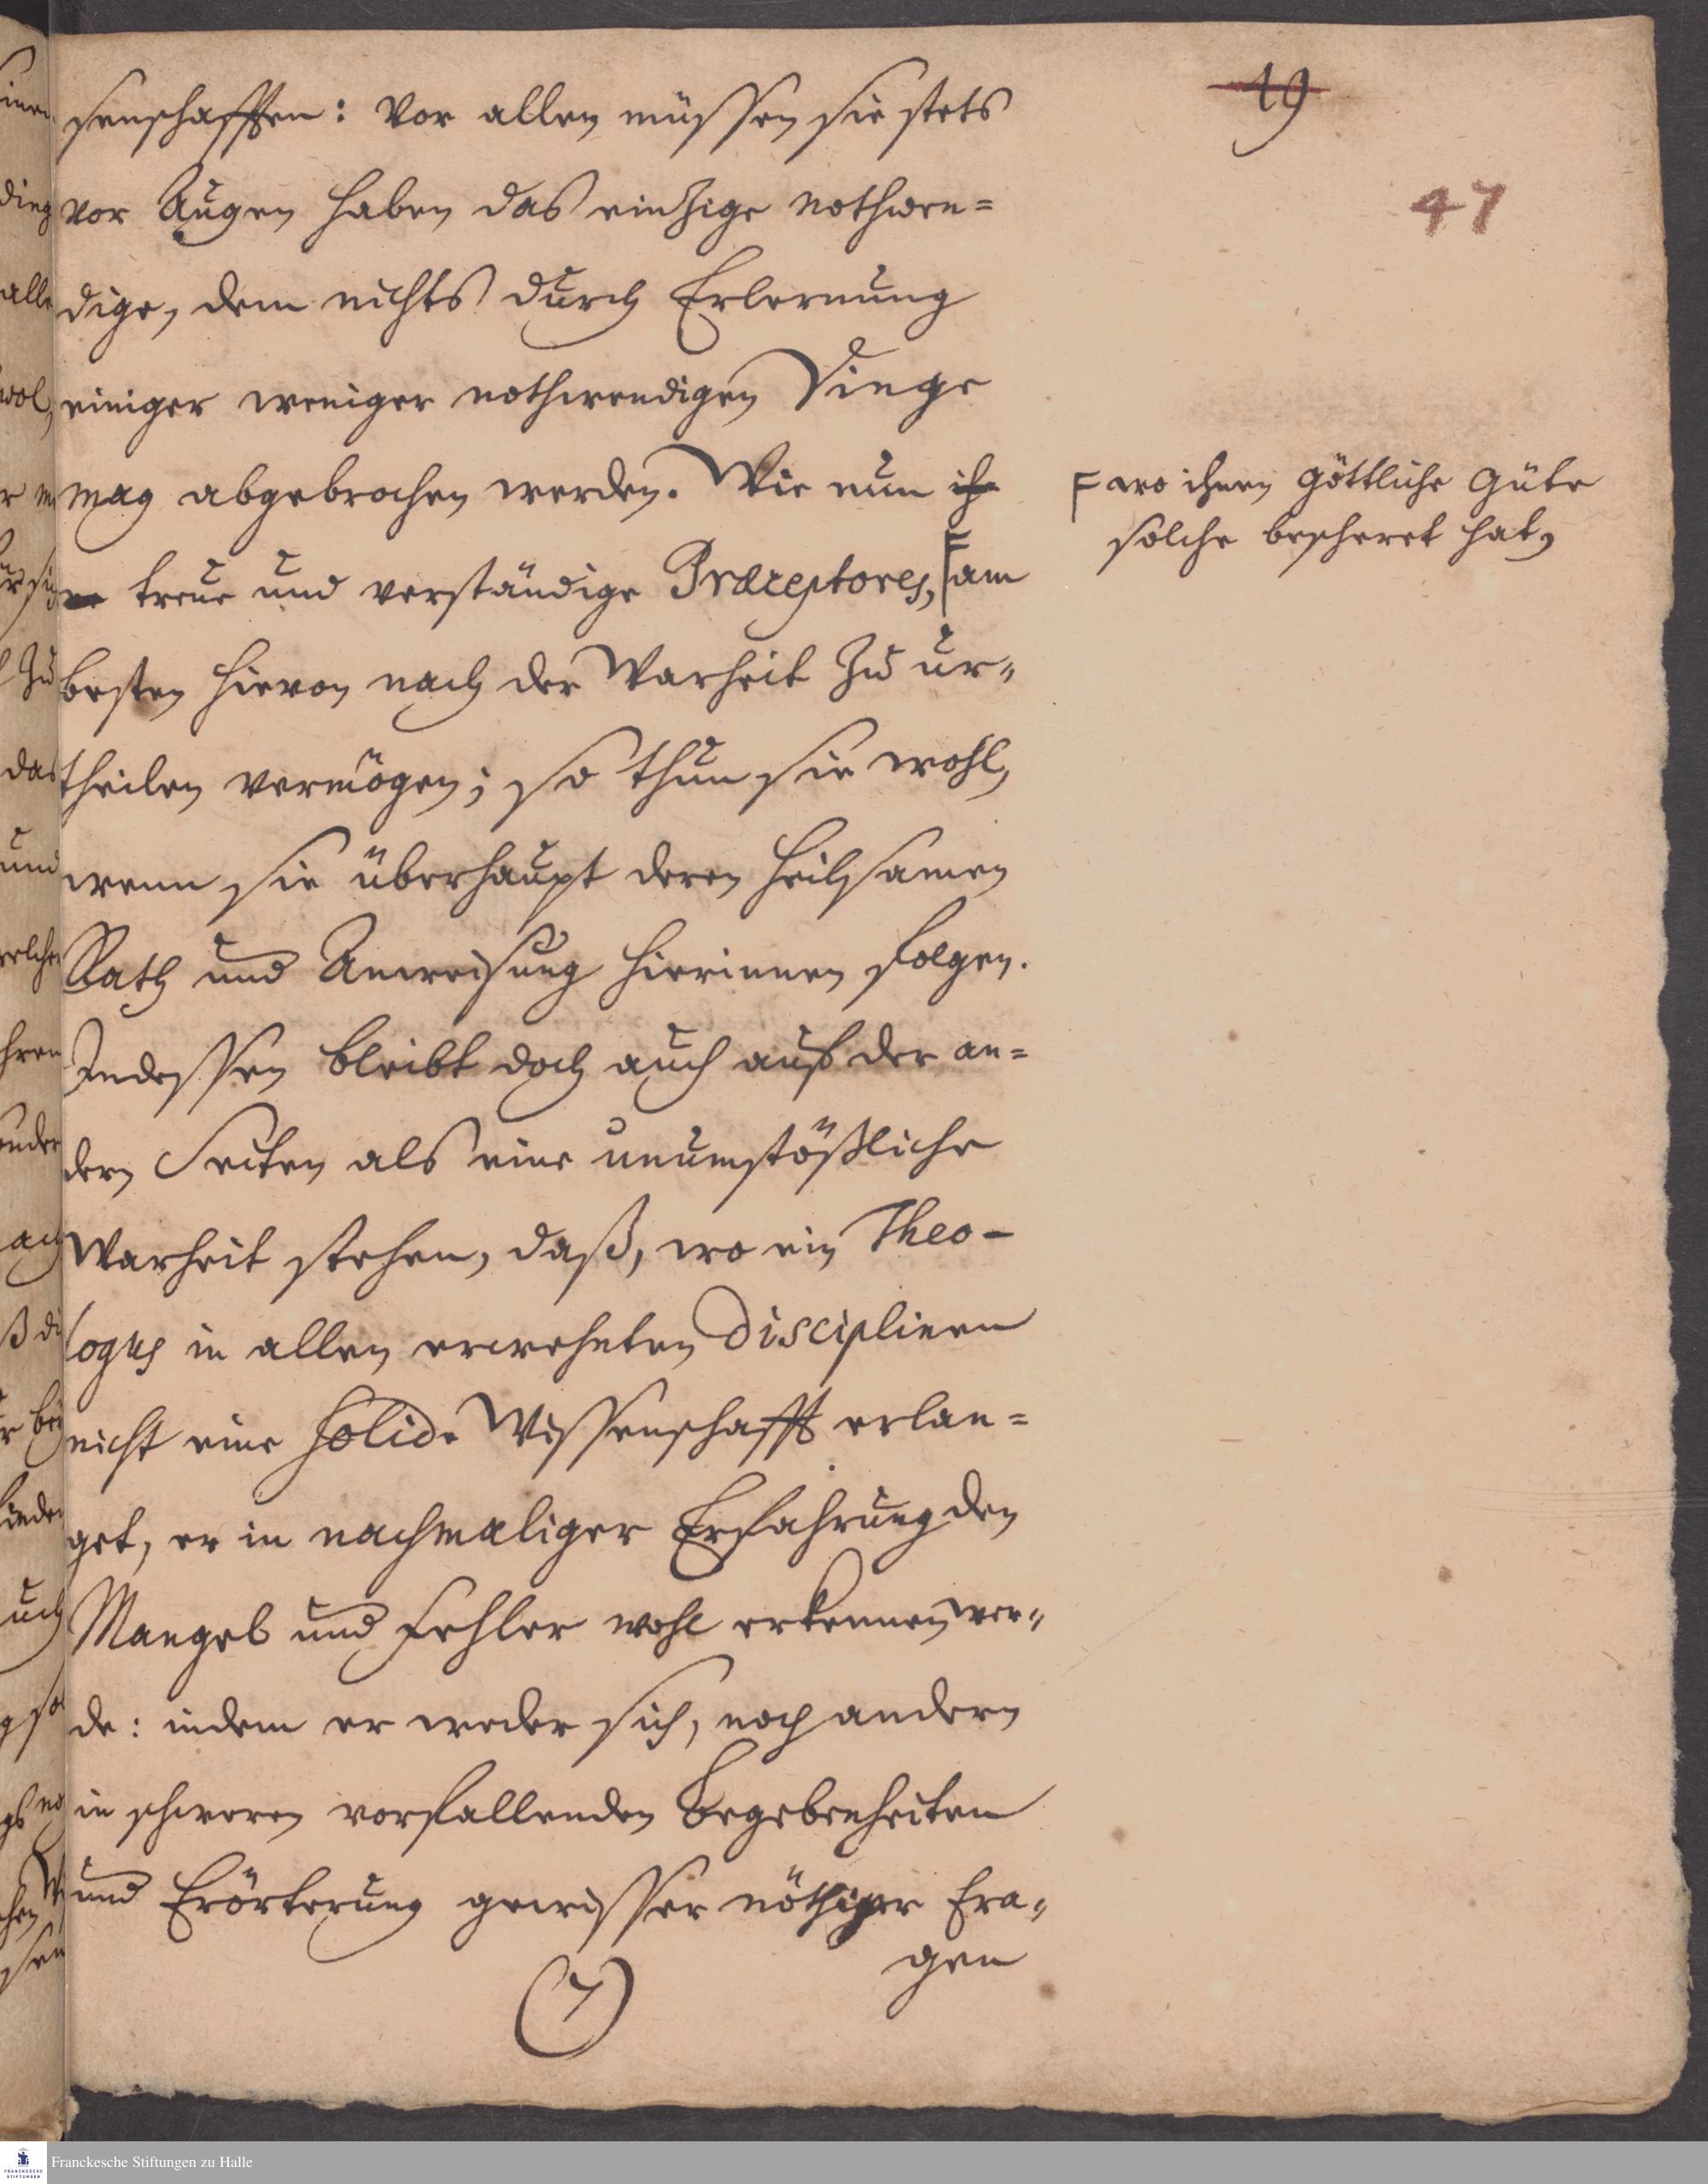 19
47
senschafften: Vor allen müssen sie stets
vor Augen haben das eintzige nothwen=
dige, dem nichts durch Erlernung
einiger weniger nothwendigen Dinge
mag abgebrochen werden. Wie nun ih=
re treue und verständige Præceptores, am
besten hievon nach der Warheit zu ur=
theilen vermögen; so thun sie wohl,
wenn sie überhaupt deren heilsamen
Rath und Anweisung hierinnen folgen.
Indessen bleibt doch auch auf der an=
dern Seiten als eine unumstößliche
Warheit stehen, daß, wo ein Theo-
logus in allen erwehnten Disciplinen
nicht eine solide Wissenschafft erlan=
get, er in nachmaliger Erfahrung den
Mangel und Fehler wohl erkennen wer=
de: indem er weder sich, noch andern
in schweren vorfallenden Begebenheiten
und Erörterung gewisser nöthiger Fra=
gen
(7)
wo ihnen Göttliche Güte
solche bescheret hat,
Franckesche Stiftungen zu Halle